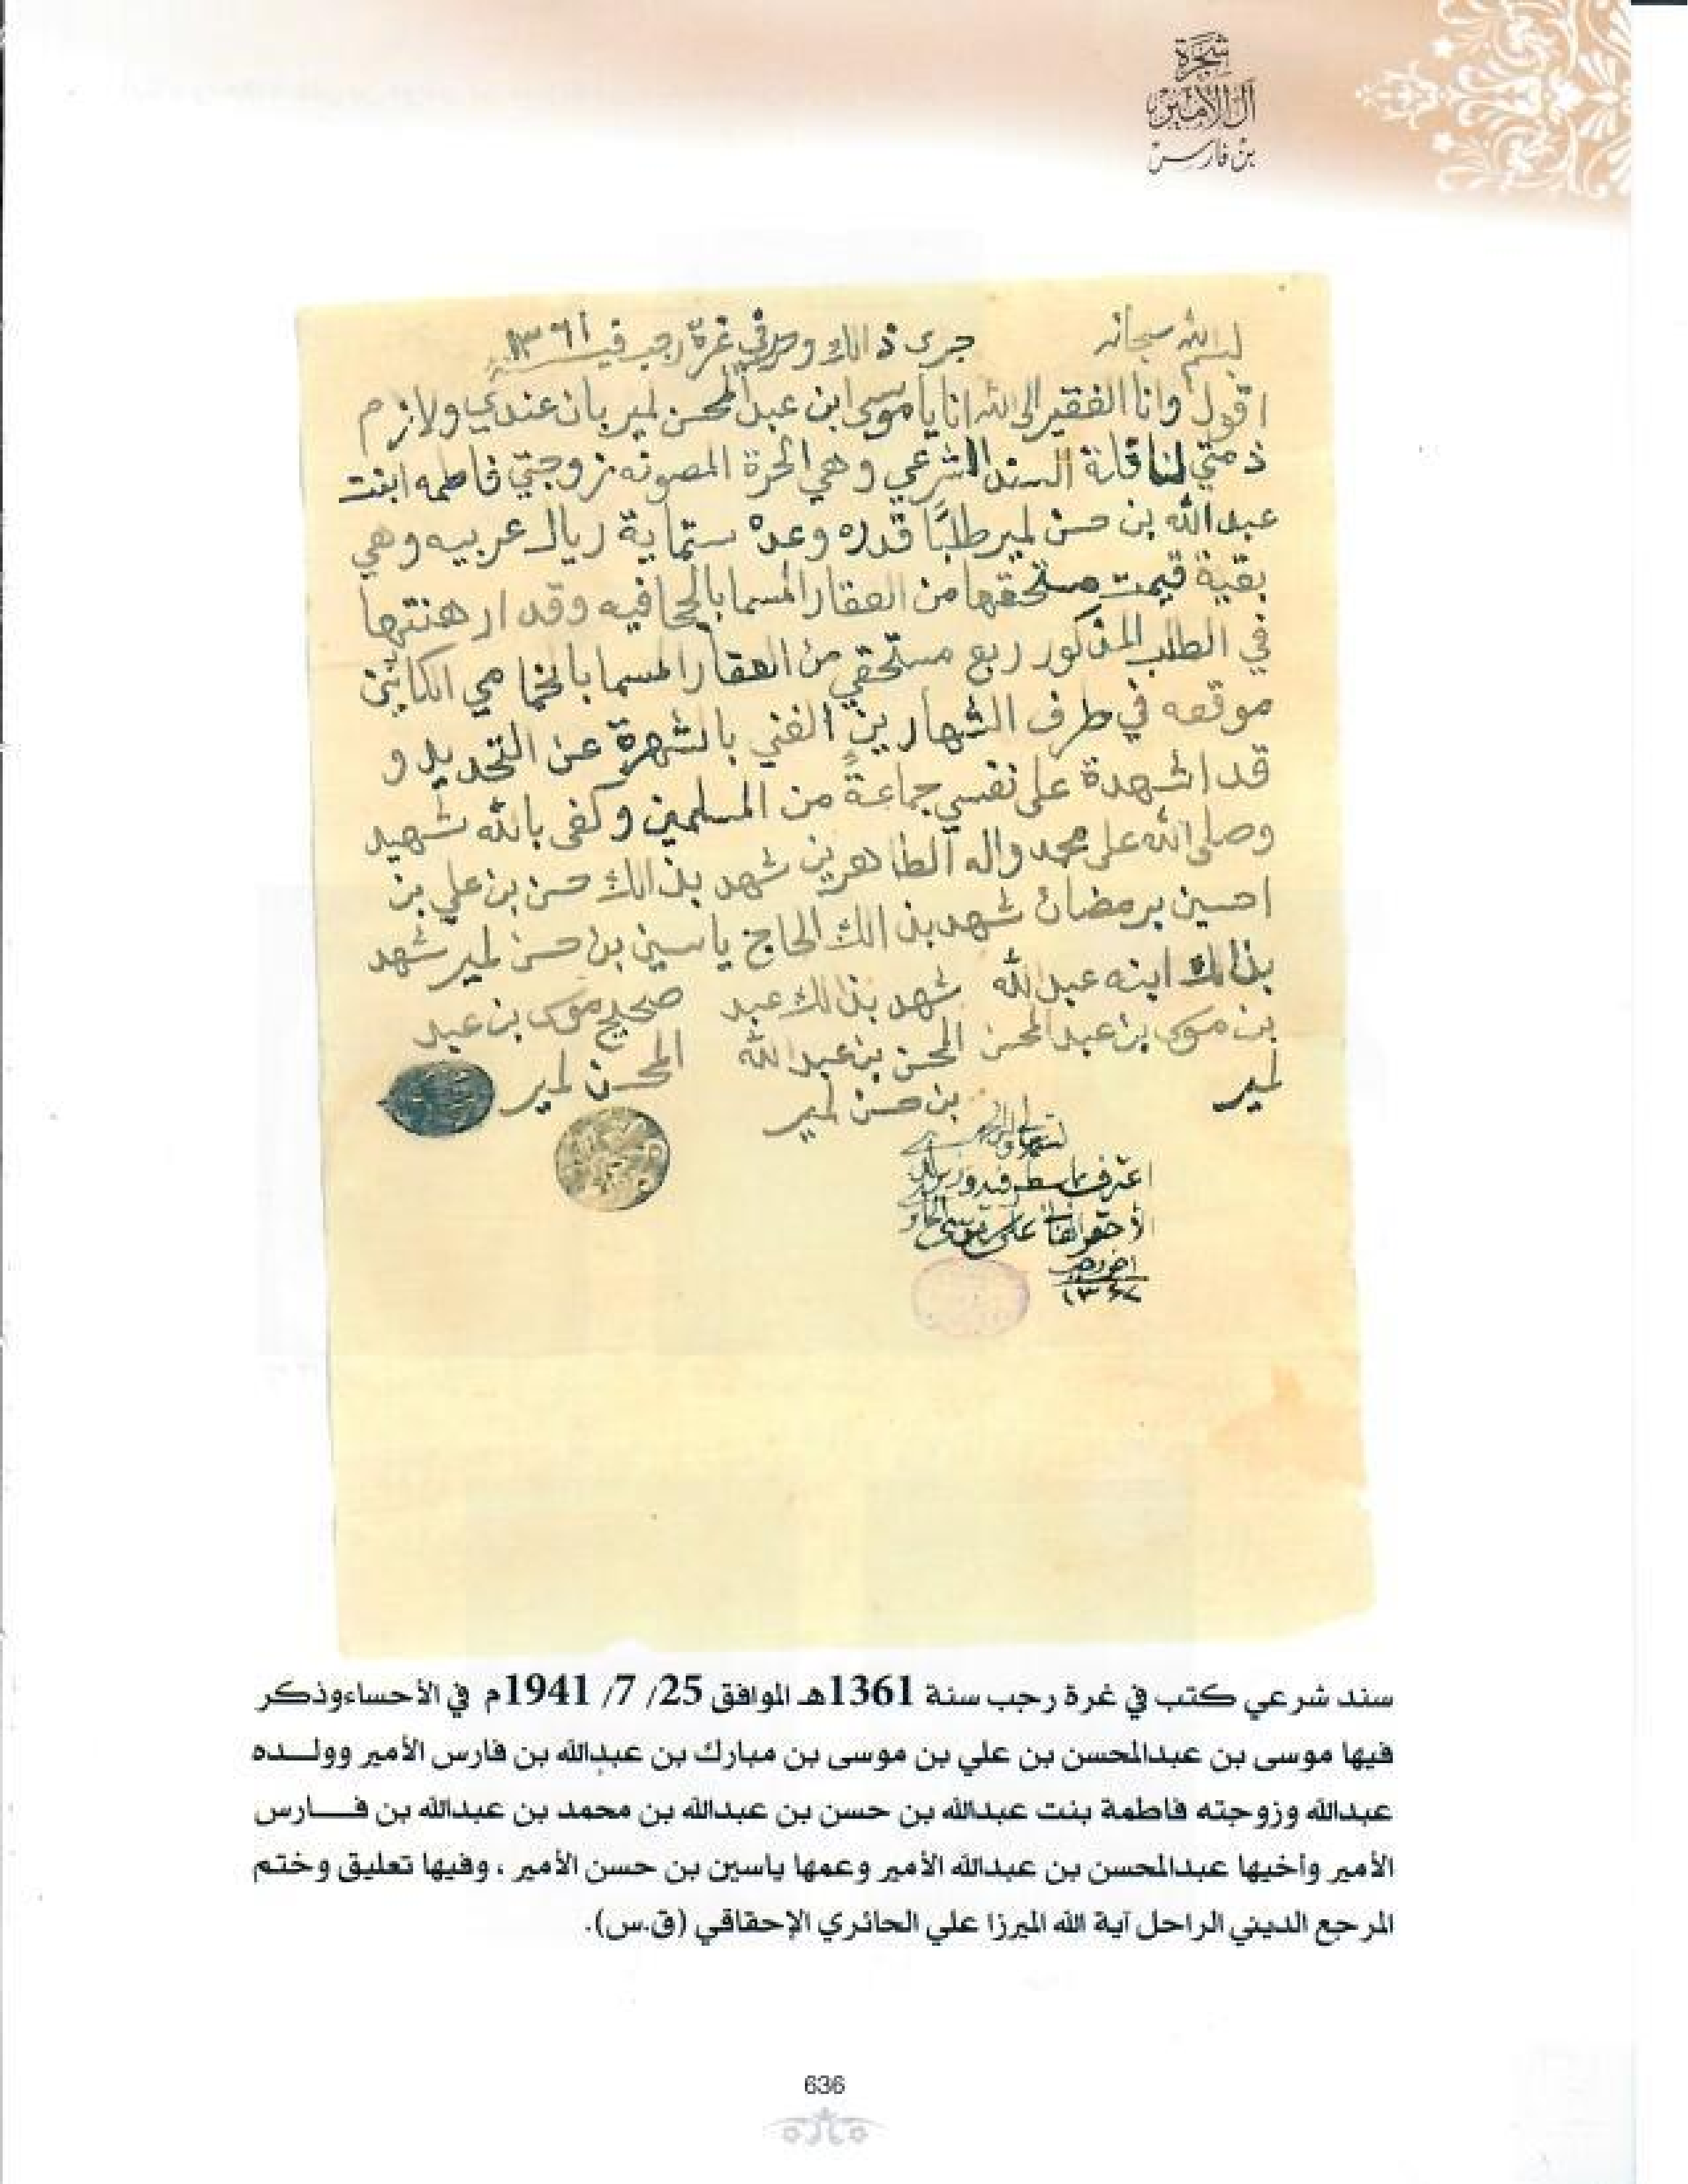 شجرة
آل الأمير
بن فارس
بسم الله سبحانه جرى ذالك وحرر في غرة رجب في سنة ١٣٦١
اقول وانا الفقير الى الله انا يا موسى ابن عبدالمحسن لمير بان عندي ولازم
ذمتي لناقلة السند الشرعي وهي الحرة المصونه زوجتي فاطمه ابنت
عبدالله بن حسن لمير طلبًا قدره وعدة ستماية ريال عربيه وهي
بقية قيمت مستحقها من العقار المسما بالحجافيه وقد ارهنتها
في الطلب المذكور ربع مستحقي من العقار المسما بالخمامي الكائن
موقعه في طرف الشهارين الغني بالشهرة عن التحديد و
قد اشهدة على نفسي جماعةً من المسلمين وكفى بالله شهيد
وصلى الله على محمد واله الطاهرين شهد بذالك حسن بن علي بن
احسين برمضان شهد بذالك الحاج ياسين بن حسن لمير شهد
بذالك ابنه عبدالله شهد بذالك عبد صحيح موسى بن عبد
بن موسى بن عبدالمحسن المحسن بن عبدالله المحسن لمير
لمير بن حسن لمير
اعترف بما سطر فيه
الأحقر علي بن موسى
١٣٦٢
سند شرعي كتب في غرة رجب سنة 1361هـ الموافق 25/ 7/ 1941م في الأحساء وذكر
فيها موسى بن عبدالمحسن بن علي بن موسى بن مبارك بن عبدالله بن فارس الأمير وولـــده
عبدالله وزوجته فاطمة بنت عبدالله بن حسن بن عبدالله بن محمد بن عبدالله بن فـــارس
الأمير وأخيها عبدالمحسن بن عبدالله الأمير وعمها ياسين بن حسن الأمير ، وفيها تعليق وختم
المرجع الديني الراحل آية الله الميرزا علي الحائري الإحقاقي (ق.س).
636